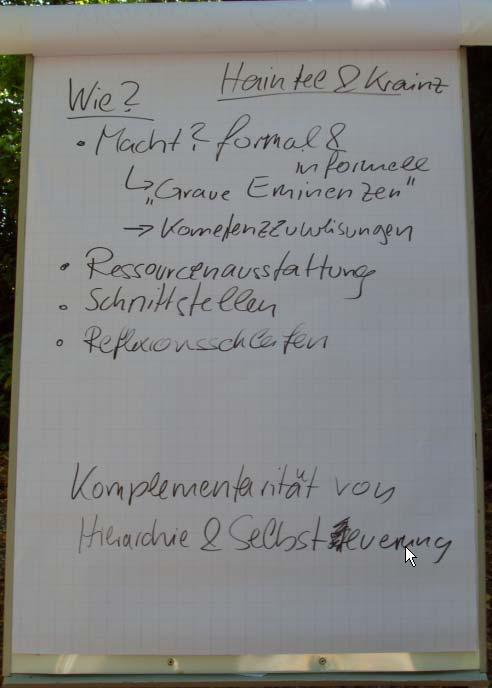 Haintel & Krainz
Wie?
• Macht? formal &
informell
↳ „Graue Eminenzen"
→ Kometenzzuweisungen
• Ressourcenausstattung
• Schnittstellen
• Reflexionsschleifen
Komplementarität von
Hierarchie & Selbststeuerung